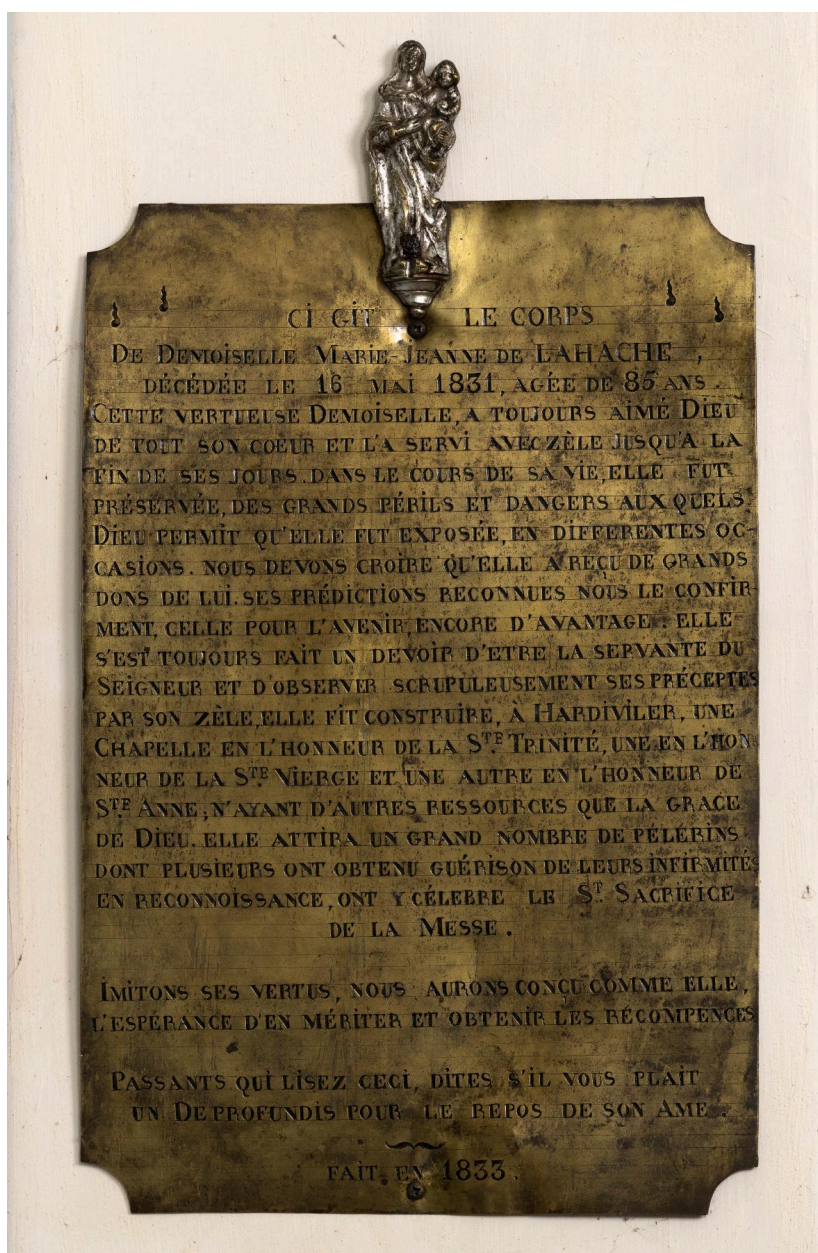 CI GIT LE CORPS
DE DEMOISELLE MARIE-JEANNE DE LAHACHE,
DÉCÉDÉE LE 16 MAI 1831, AGÉE DE 85 ANS.
CETTE VERTUEUSE DEMOISELLE, A TOUJOURS AIMÉ DIEU
DE TOUT SON COEUR ET L'A SERVI AVEC ZÈLE JUSQU'A LA
FIN DE SES JOURS. DANS LE COURS DE SA VIE, ELLE FUT
PRÉSERVÉE, DES GRANDS PÉRILS ET DANGERS AUX QUELS
DIEU PERMIT QU'ELLE FUT EXPOSÉE, EN DIFFERENTES OC-
CASIONS. NOUS DEVONS CROIRE QU'ELLE A REÇU DE GRANDS
DONS DE LUI. SES PRÉDICTIONS RECONNUES NOUS LE CONFIR-
MENT, CELLE POUR L'AVENIR, ENCORE D'AVANTAGE: ELLE
S'EST TOUJOURS FAIT UN DEVOIR D'ETRE LA SERVANTE DU
SEIGNEUR ET D'OBSERVER SCRUPULEUSEMENT SES PRÉCEPTES
PAR SON ZÈLE, ELLE FIT CONSTRUIRE, À HARDIVILER, UNE
CHAPELLE EN L'HONNEUR DE LA STE. TRINITÉ, UNE EN L'HON
NEUR DE LA STE. VIERGE ET UNE AUTRE EN L'HONNEUR DE
STE. ANNE; N'AYANT D'AUTRES RESSOURCES QUE LA GRACE
DE DIEU. ELLE ATTIRA UN GRAND NOMBRE DE PÉLÉRINS
DONT PLUSIEURS ONT OBTENU GUÉRISON DE LEURS INFIRMITÉS
EN RECONNOISSANCE, ONT Y CÉLEBRE LE ST. SACRIFICE
DE LA MESSE.
IMITONS SES VERTUS, NOUS AURONS CONÇU COMME ELLE,
L'ESPÉRANCE D'EN MÉRITER ET OBTENIR LES RÉCOMPENCES
PASSANTS QUI LISEZ CECI, DITES S'IL VOUS PLAIT
UN DE PROFUNDIS POUR LE REPOS DE SON AME.
FAIT EN 1833.